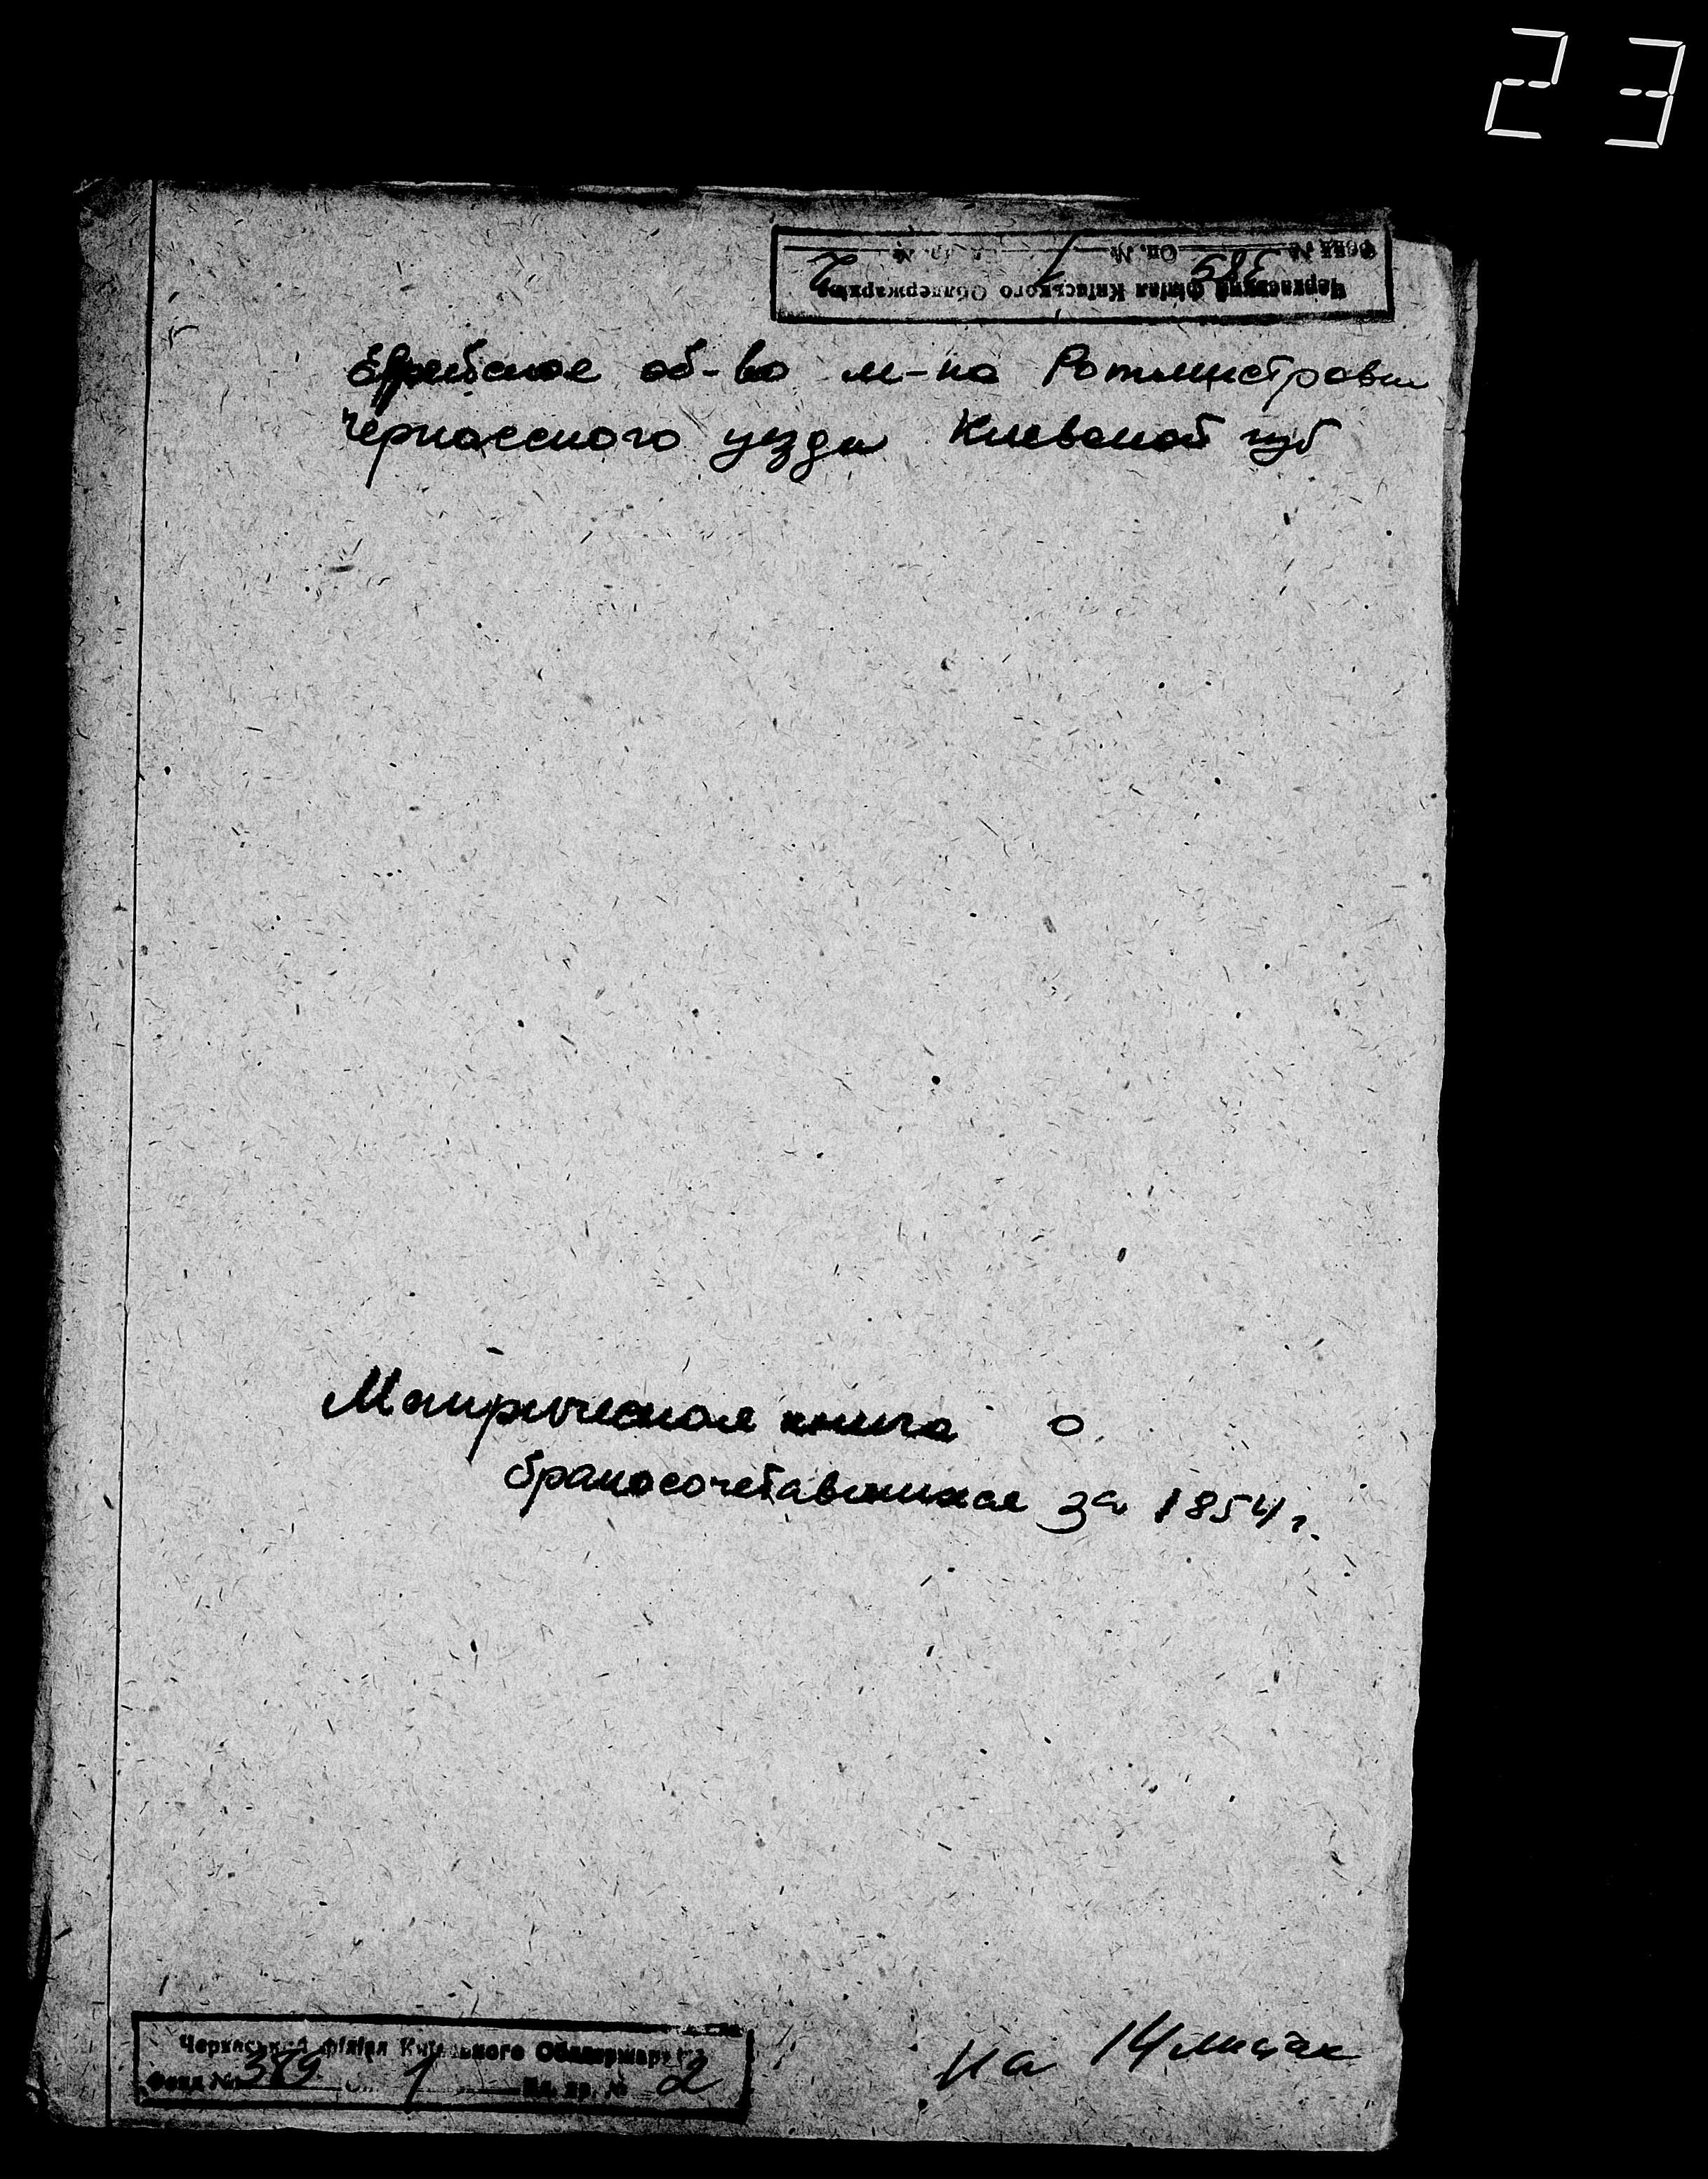 23
Фонд № 389 Оп. № 1 № 2
Черкаський філіал Київського Облдержархіва
Еврейское об-во м-ка Ротмистровки
Черкасского уезда Киевской губ
Метрическая книга о
бракосочетавшихся за 1854 г.
на 14 листах
Черкаський філіал Київського Облдержархіва
Фонд № 389 1 Од. зр. № 2